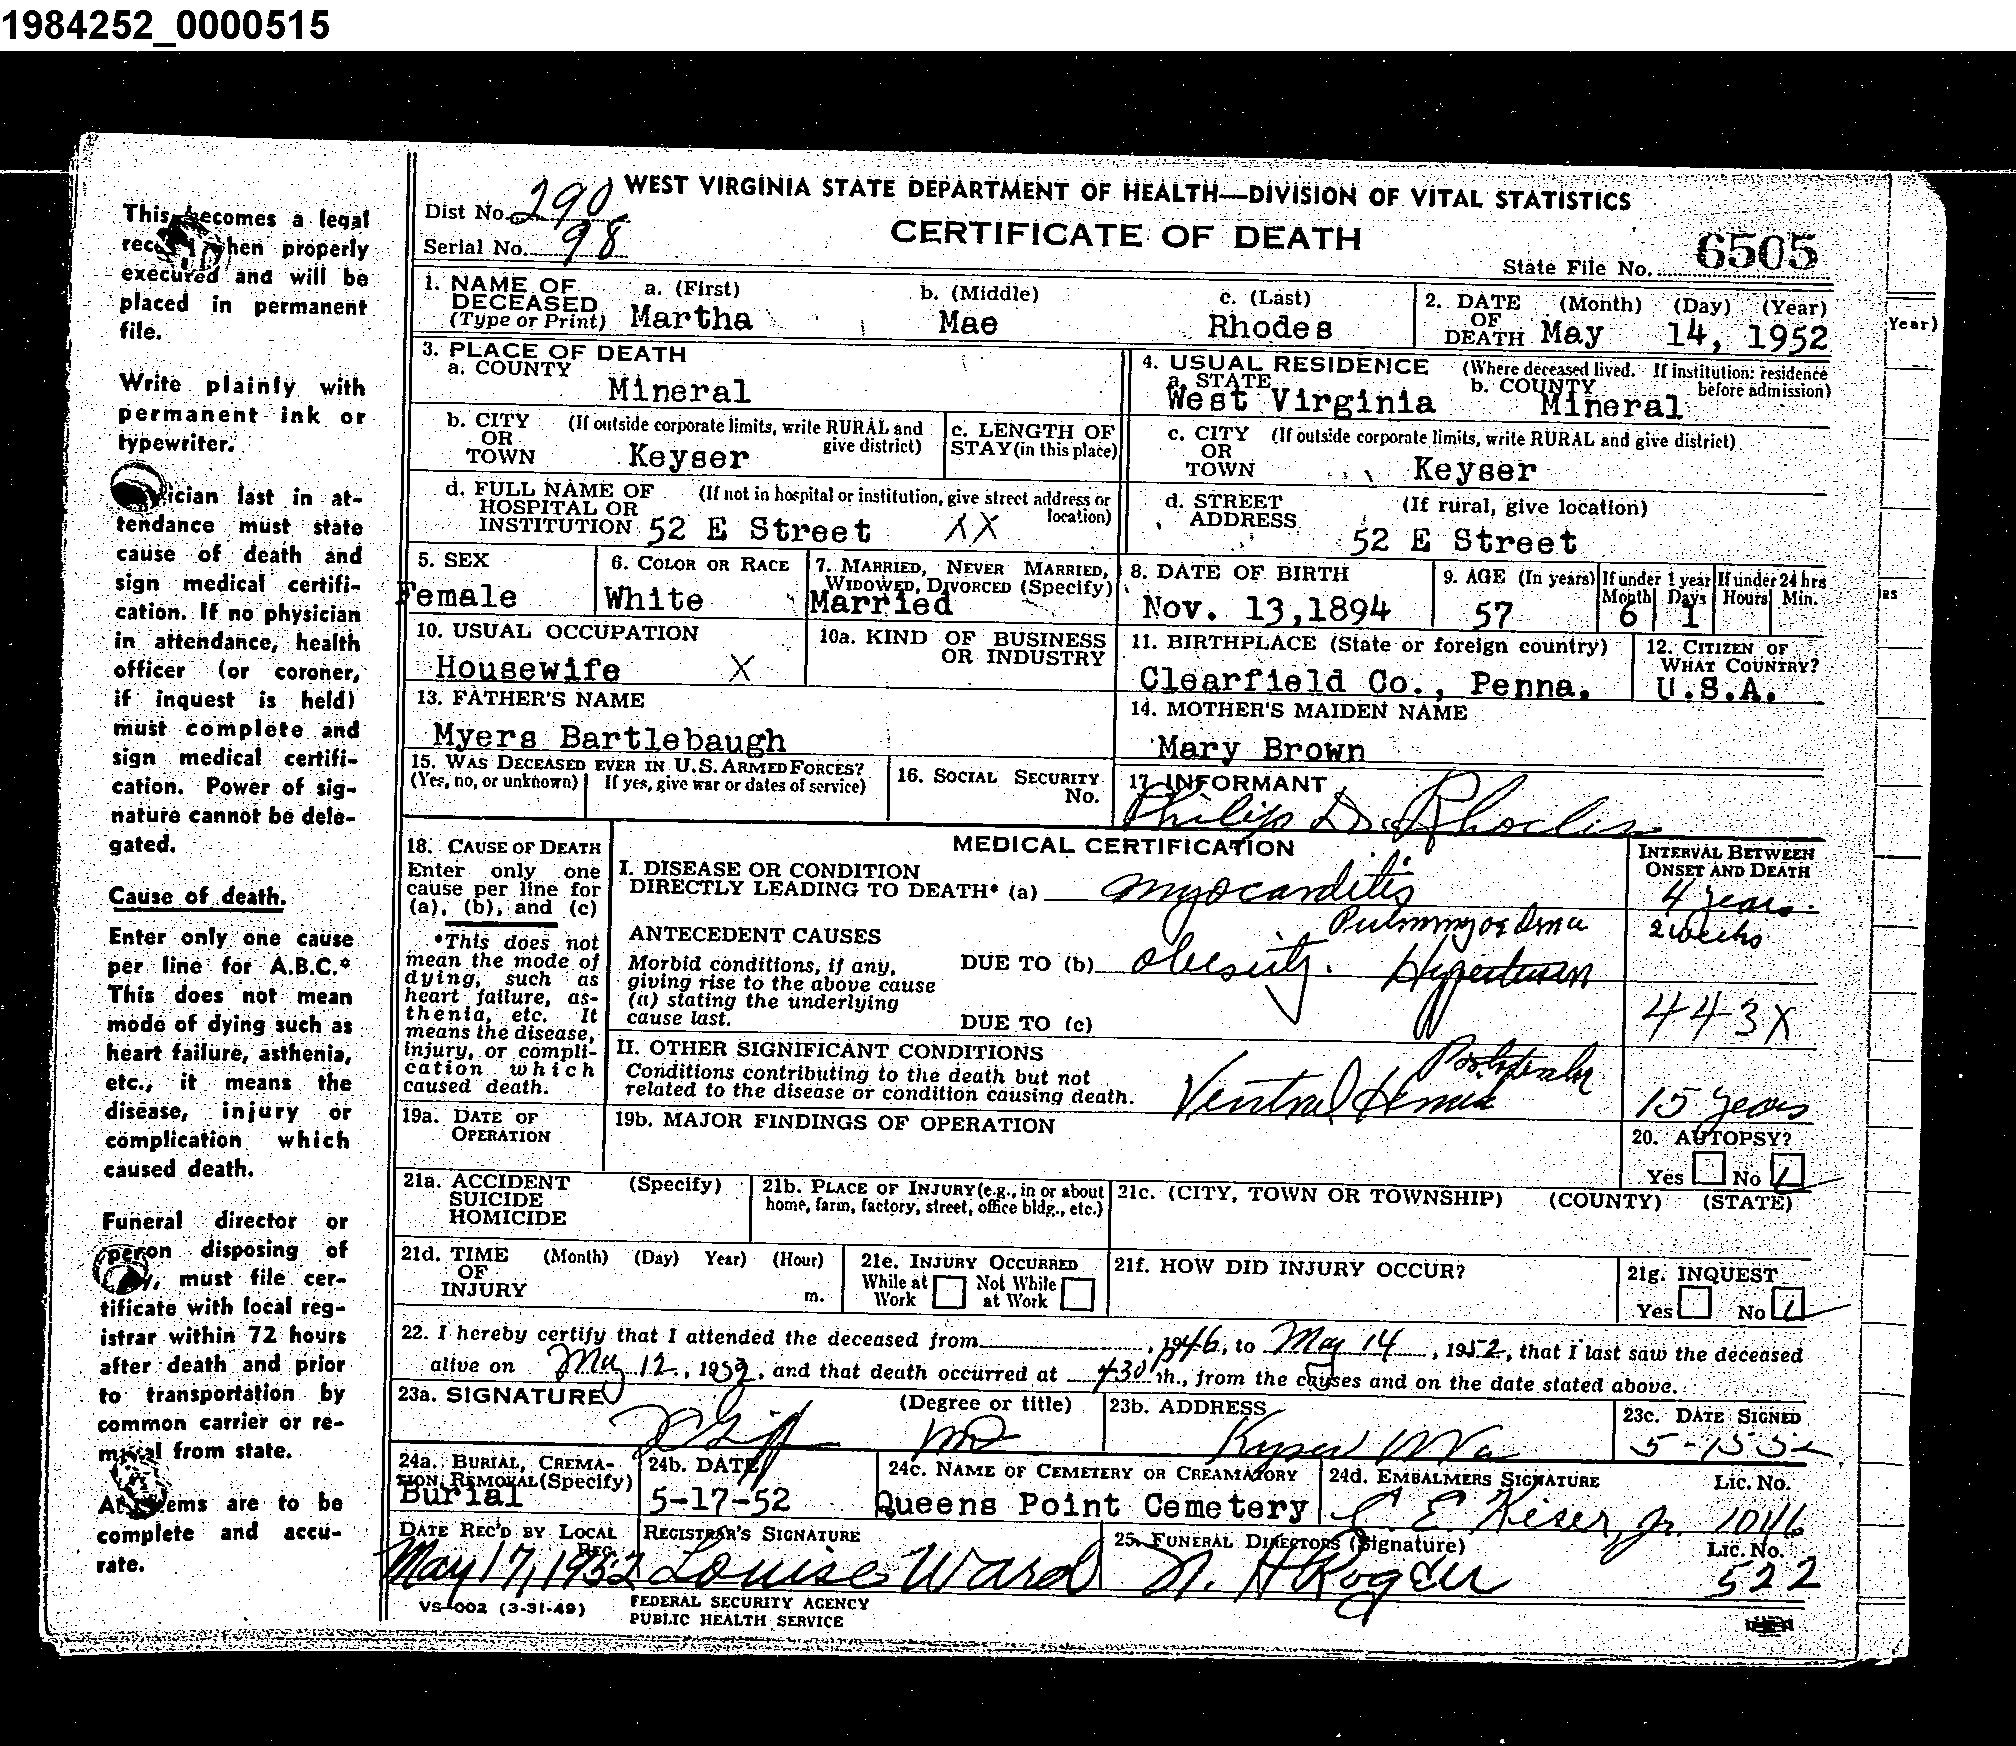 1984252_0000515
This becomes a legal
record when properly
executed and will be
placed in permanent
file.
Write plainly with
permanent ink or
typewriter.
Physician last in at-
tendance must state
cause of death and
sign medical certifi-
cation. If no physician
in attendance, health
officer (or coroner,
if inquest is held)
must complete and
sign medical certifi-
cation. Power of sig-
nature cannot be dele-
gated.
Cause of death.
Enter only one cause
per line for A.B.C.*
This does not mean
mode of dying such as
heart failure, asthenia,
etc., it means the
disease, injury or
complication which
caused death.
Funeral director or
person disposing of
must file cer-
tificate with local reg-
istrar within 72 hours
after death and prior
to transportation by
common carrier or re-
moval from state.
All items are to be
complete and accu-
rate.
WEST VIRGINIA STATE DEPARTMENT OF HEALTH—DIVISION OF VITAL STATISTICS
Dist No. 290
Serial No. 98
CERTIFICATE OF DEATH
State File No. 6505
1. NAME OF DECEASED (Type or Print) a. (First) Martha b. (Middle) Mae c. (Last) Rhodes
2. DATE OF DEATH (Month) (Day) (Year) May 14, 1952
Year)
3. PLACE OF DEATH
a. COUNTY Mineral
4. USUAL RESIDENCE (Where deceased lived. If institution: residence before admission)
a. STATE West Virginia b. COUNTY Mineral
b. CITY OR TOWN (If outside corporate limits, write RURAL and give district) Keyser
c. LENGTH OF STAY (in this place)
c. CITY OR TOWN (If outside corporate limits, write RURAL and give district) Keyser
d. FULL NAME OF HOSPITAL OR INSTITUTION (If not in hospital or institution, give street address or location) 52 E Street XX
d. STREET ADDRESS (If rural, give location) 52 E Street
5. SEX Female
6. COLOR OR RACE White
7. MARRIED, NEVER MARRIED, WIDOWED, DIVORCED (Specify) Married
8. DATE OF BIRTH Nov. 13,1894
9. AGE (In years) 57 If under 1 year Month 6 Days 1 If under 24 hrs Hours Min.
10. USUAL OCCUPATION Housewife X
10a. KIND OF BUSINESS OR INDUSTRY
11. BIRTHPLACE (State or foreign country) Clearfield Co., Penna.
12. CITIZEN OF WHAT COUNTRY? U.S.A.
13. FATHER'S NAME Myers Bartlebaugh
14. MOTHER'S MAIDEN NAME Mary Brown
15. WAS DECEASED EVER IN U.S. ARMED FORCES? (Yes, no, or unknown) If yes, give war or dates of service)
16. SOCIAL SECURITY No.
17. INFORMANT Philip D. Rhodes
18. CAUSE OF DEATH
Enter only one
cause per line for
(a), (b), and (c)
*This does not
mean the mode of
dying, such as
heart failure, as-
thenia, etc. It
means the disease,
injury, or compli-
cation which
caused death.
MEDICAL CERTIFICATION
INTERVAL BETWEEN ONSET AND DEATH
I. DISEASE OR CONDITION
DIRECTLY LEADING TO DEATH* (a) Myocarditis 4 years.
2 weeks
ANTECEDENT CAUSES
Morbid conditions, if any,
giving rise to the above cause
(a) stating the underlying
cause last.
DUE TO (b) Obesity.
DUE TO (c) 443X
II. OTHER SIGNIFICANT CONDITIONS
Conditions contributing to the death but not
related to the disease or condition causing death. Ventral Hernia 15 years
19a. DATE OF OPERATION
19b. MAJOR FINDINGS OF OPERATION
20. AUTOPSY?
Yes No
21a. ACCIDENT SUICIDE HOMICIDE (Specify)
21b. PLACE OF INJURY (e.g., in or about home, farm, factory, street, office bldg., etc.)
21c. (CITY, TOWN OR TOWNSHIP) (COUNTY) (STATE)
21d. TIME OF INJURY (Month) (Day) Year) (Hour) m.
21e. INJURY OCCURRED While at Work Not While at Work
21f. HOW DID INJURY OCCUR?
21g. INQUEST
Yes No
22. I hereby certify that I attended the deceased from , 1946, to May 14, 1952, that I last saw the deceased
alive on May 12, 1952, and that death occurred at 430 m., from the causes and on the date stated above.
23a. SIGNATURE (Degree or title) MD
23b. ADDRESS Keyser W Va
23c. DATE SIGNED 5-15-52
24a. BURIAL, CREMATION, REMOVAL (Specify) Burial
24b. DATE 5-17-52
24c. NAME OF CEMETERY OR CREAMATORY Queens Point Cemetery
24d. EMBALMERS SIGNATURE Lic. No. E. Kiser, Jr. 1046
DATE REC'D BY LOCAL REG. May 17, 1952
REGISTRAR'S SIGNATURE Louise Ward
25. FUNERAL DIRECTORS (Signature) N. H Roger Lic. No. 522
VS-002 (3-31-49)
FEDERAL SECURITY AGENCY
PUBLIC HEALTH SERVICE